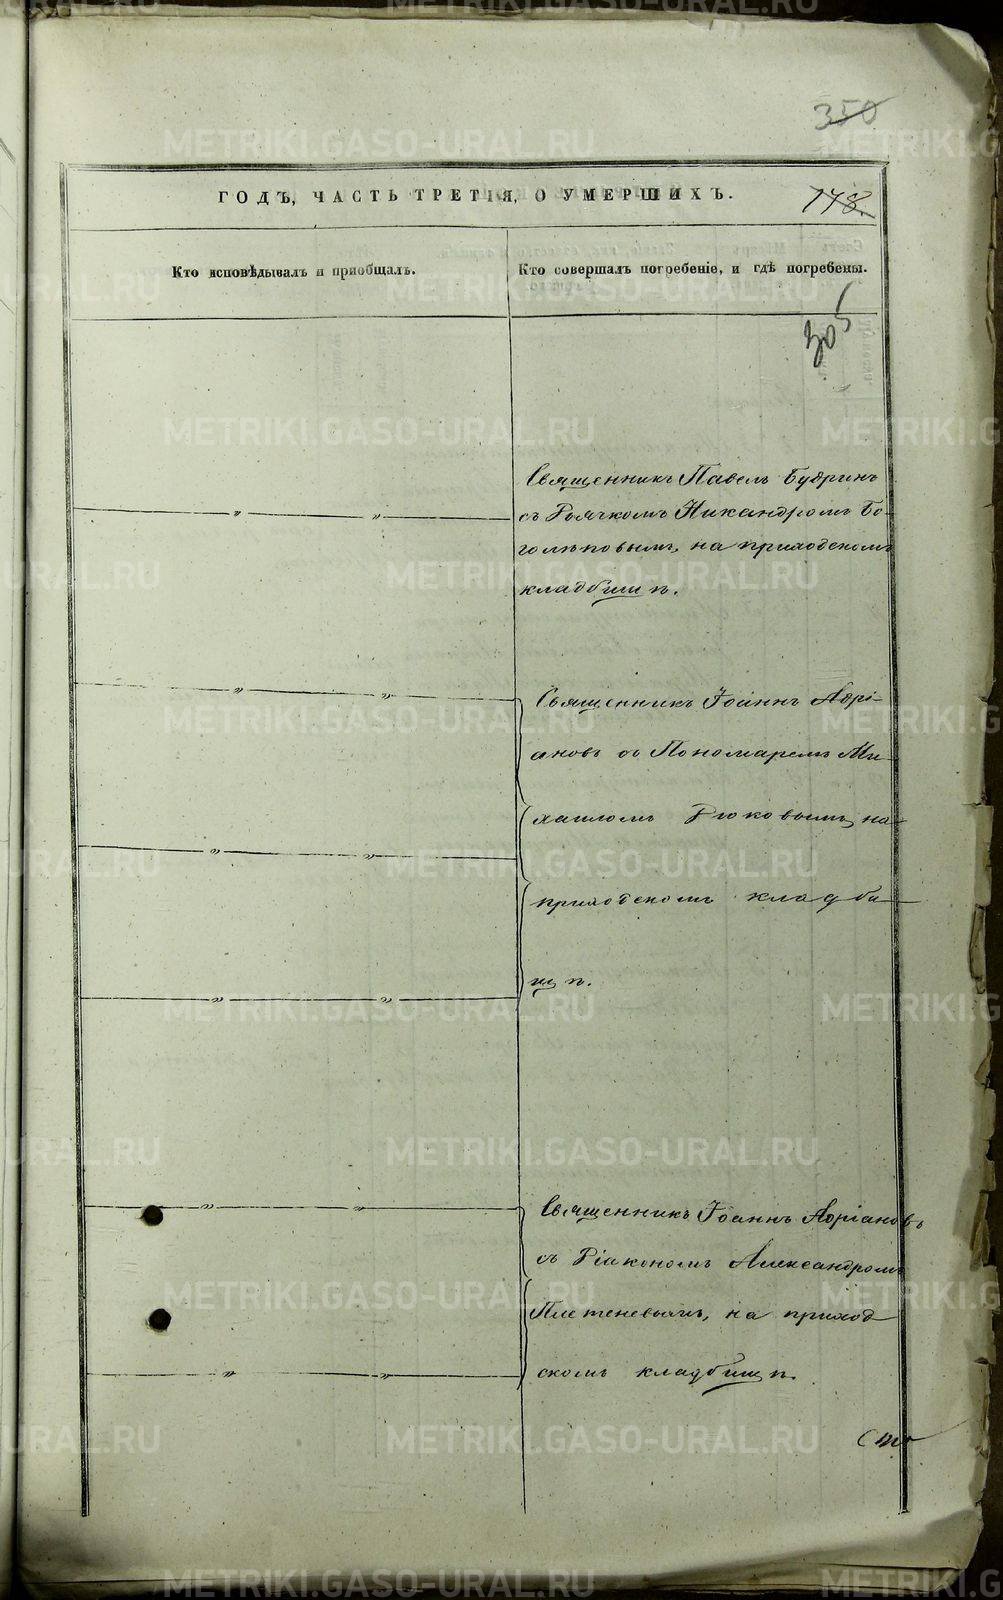 350
ГОДЪ, ЧАСТЬ ТРЕТІЯ, О УМЕРШИХЪ.
178.
Кто исповѣдывалъ и приобщалъ.
Кто совершалъ погребеніе, и гдѣ погребены.
305
Священникъ Павелъ Будринъ
съ Дьячкомъ Никандромъ Бо-
голѣповымъ, на приходскомъ
кладбищѣ.
Священникъ Іоаннъ Адрі-
ановъ съ Пономаремъ Ми-
хаиломъ
на
приходскомъ кладби-
щѣ.
Священникъ Іоаннъ Адріановъ
съ Діакономъ Александромъ
Плетеневымъ, на приход
скомъ кладбищѣ.
METRIKI.GASO-URAL.RU